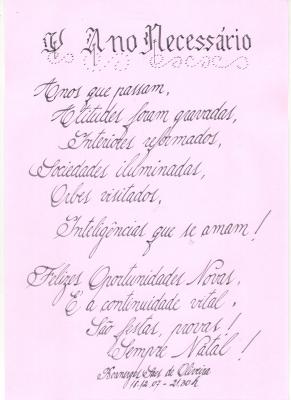 O Ano Necessário
Anos que passam,
Altitudes foram gravadas,
Interiores reformados,
Sociedades iluminadas,
Orbes visitados,
Inteligências que se amam!
Felizes Oportunidades Novas,
E a continuidade vital.
São festas, provas!
Sempre Natal!
de Oliveira
18.12.07 - 21:30h